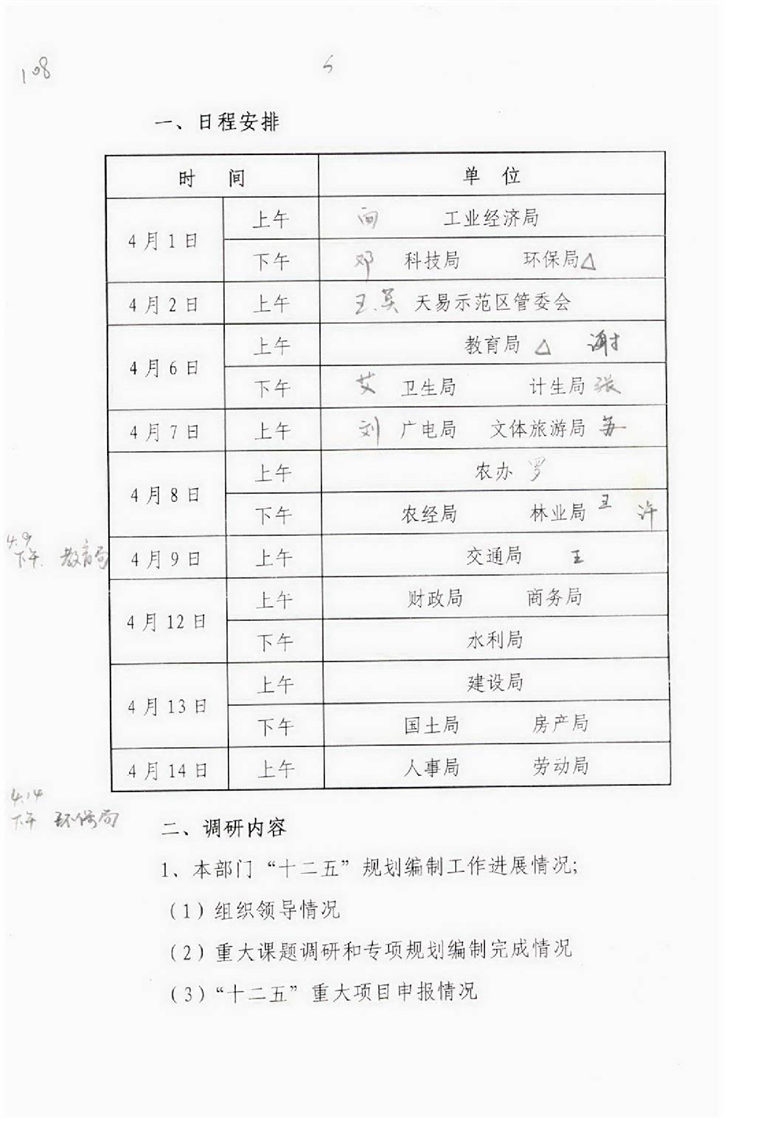 108
一、日程安排
时 间 单 位
4月1日 上午 向 工业经济局
下午 邓 科技局 环保局△
4月2日 上午 王.英 天易示范区管委会
4月6日 上午 教育局 △ 谢
下午 艾 卫生局 计生局 张
4月7日 上午 刘 广电局 文体旅游局 苏
4月8日 上午 农办 罗
下午 农经局 林业局 王 许
4.9
下午 教育局
4月9日 上午 交通局 王
4月12日 上午 财政局 商务局
下午 水利局
4月13日 上午 建设局
下午 国土局 房产局
4月14日 上午 人事局 劳动局
4.14
下午 环保局
二、调研内容
1、本部门“十二五”规划编制工作进展情况;
(1)组织领导情况
(2)重大课题调研和专项规划编制完成情况
(3)“十二五”重大项目申报情况